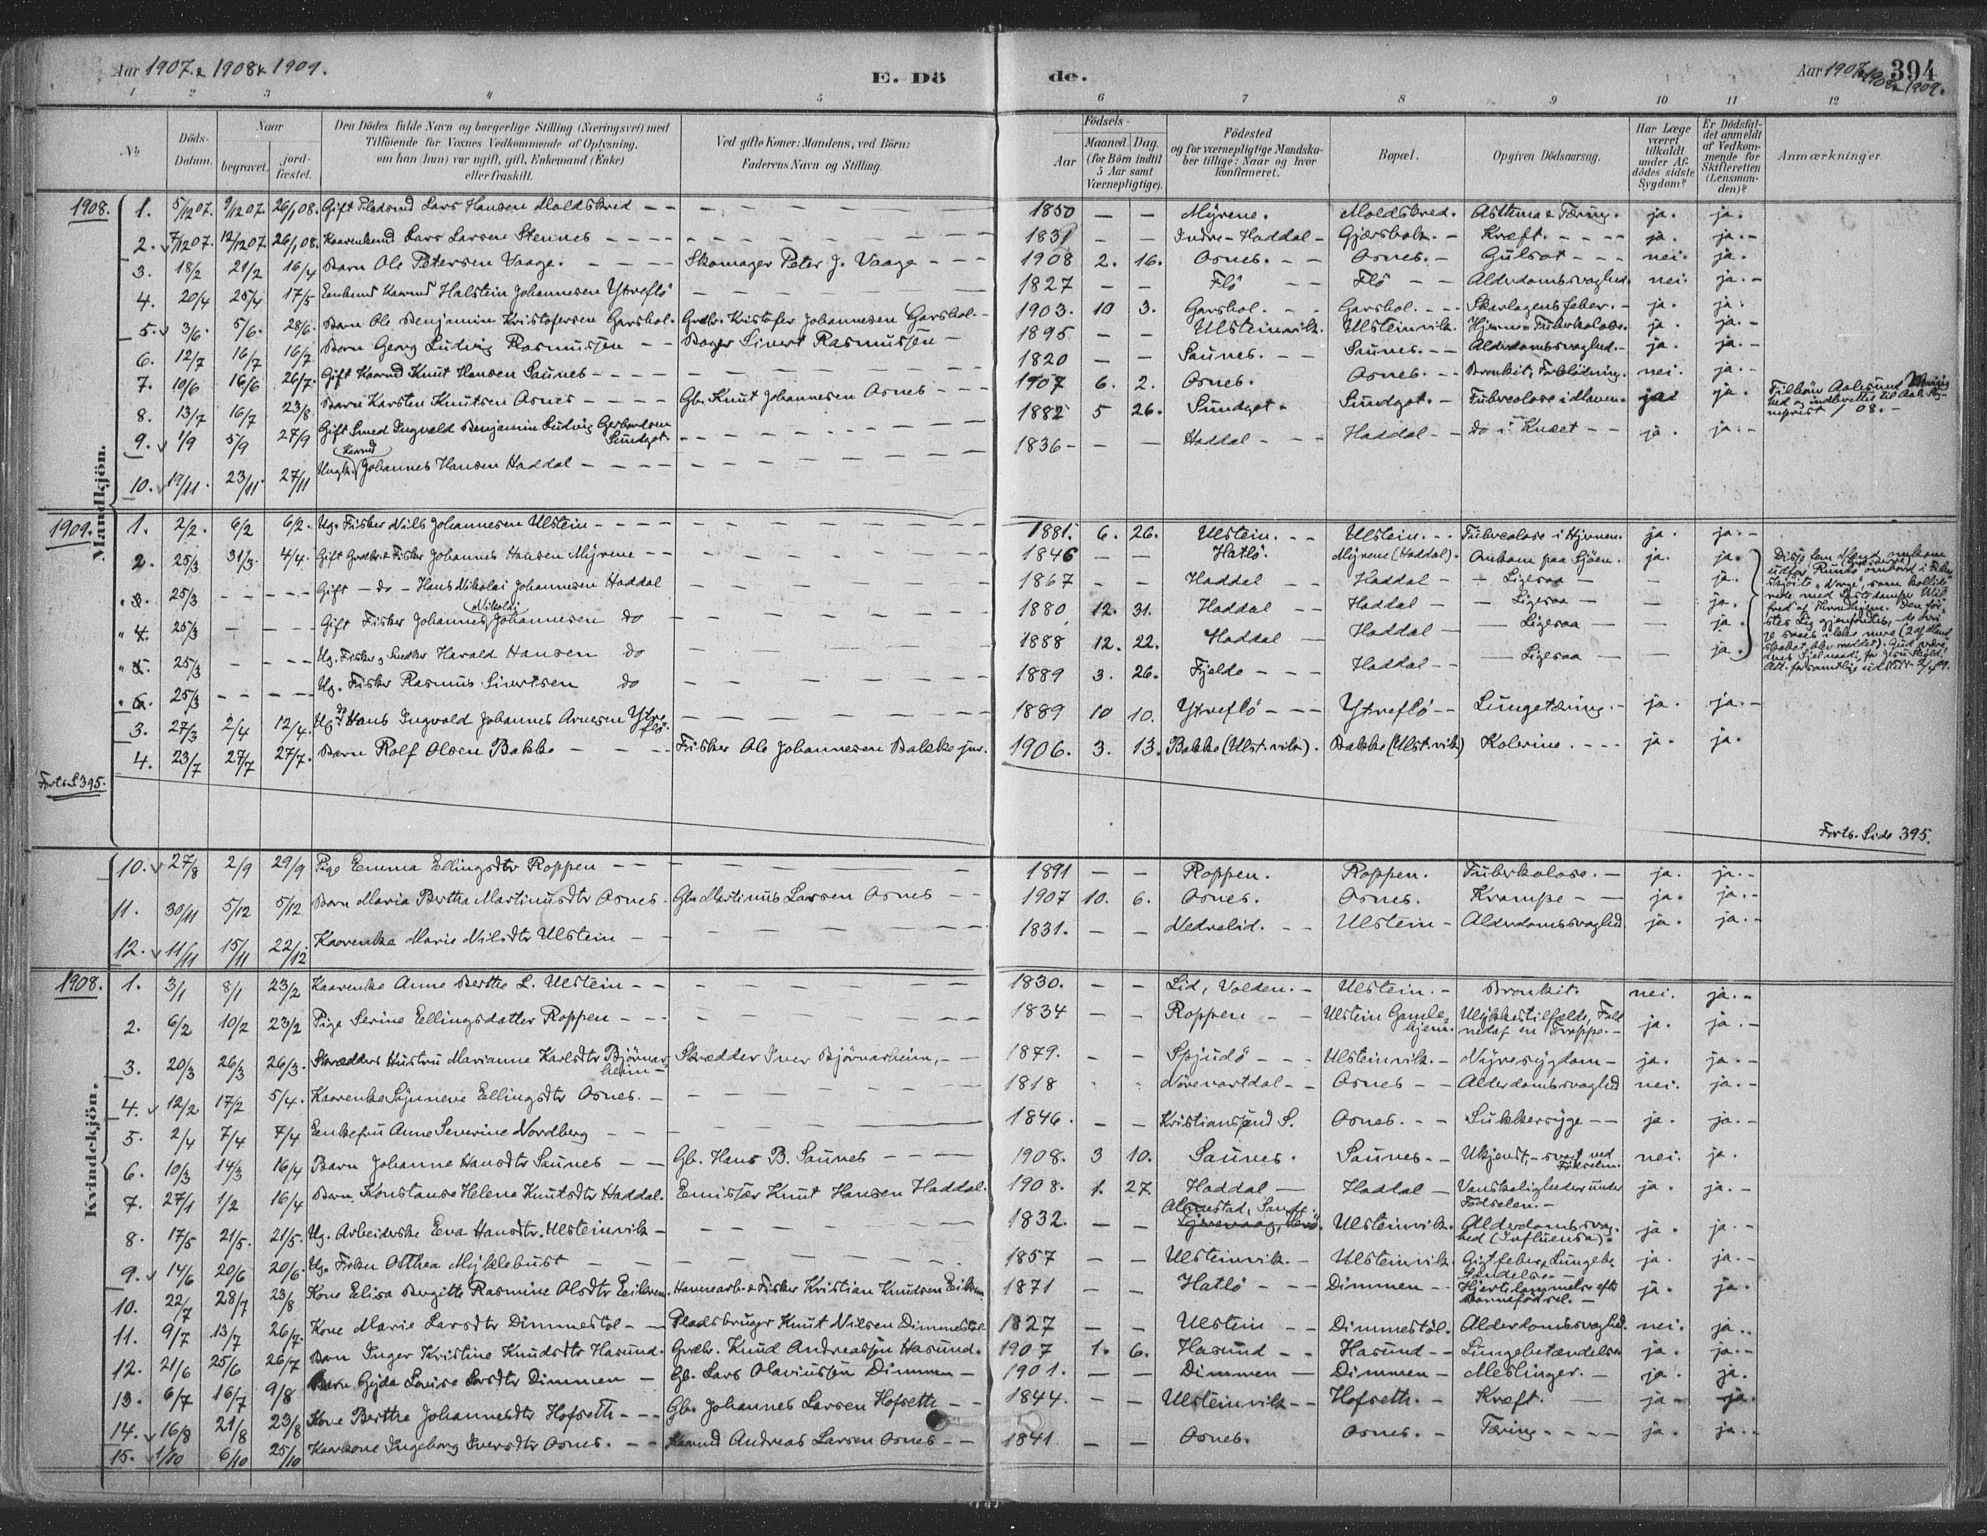 Aar 1907 & 1908 & 1909.
E. Dö
de.
Aar 1907 & 1908 & 1909.
394
1 2 3 4 5 6 7 8 9 10 11 12
No
Döds-Datum.
Naar
begravet.
jord-fæstet.
Den Dödes fulde Navn og borgerlige Stilling (Næringsvei) med
Tilföiende for Voxnes Vedkommende af Oplysning,
om han (hun) var ugift, gift, Enkemand (Enke)
eller fraskilt.
Ved gifte Koner: Mandens, ved Börn:
Faderens Navn og Stilling.
Födsels-
Aar
Maaned. Dag.
(for Börn indtil
5 Aar samt
Værnepligtige).
Födested
og for værnepligtige Mandska-
ber tillige: Naar og hvor
konfirmeret.
Bopæl.
Opgiven Dödsaarsag.
Har Læge
været
tilkaldt
under Af-
dödes sidste
Sygdom?
Er Dödsfal-
det anmeldt
af Vedkom-
mende for
Skifteretten
(Lensman-
den)?
Anmærkninger.
Mandkjön.
1908. 1. 5/12 07. 9/12 07. 26/1 08. Gift Pladsmd Lars Hansen Moldskred — — 1850 — — Myrene. Moldskred. Asthma & Tæring. ja. ja.
2. 7/12 07. 12/12 07. 26/1 08. Kaarenkemd Lars Larsen Stennes — — 1831 — — Indre-Haddal — Gjærsholm. — Kræft. — — ja. ja.
3. 18/2 21/2 16/4 Barn Ole Petersen Vaage. — Skomager Peter J. Vaage — — 1908 2. 16. Osnes. — Osnes. — Gulsot — — nei. ja.
4. 20/4 25/4 17/5 Enkemd Kaarmd Halstein Johannesen Ytreflö — 1827 — — Flö — Flö — Alderdomsvaghed. nei. ja.
5. 3/6 5/6. 28/6. Barn Ole Benjamin Kristofersen Garshol. Grdbr. Kristofer Johannesen Garshol. — 1903. 10 3. Garshol. — Garshol. — Skarlagensfeber. — ja. ja.
6. 12/7 16/7 16/7 Barn Georg Ludvig Rasmussen — — Bager Sivert Rasmussen — 1895 — — Ulsteinvik. Ulsteinvik. Hjerne-Tuberkolose. ja. ja.
7. 10/6 16/6 26/7. Gift Kaarmd Knut Hansen Saunes — — 1820 — — Saunes. — Saunes. — Alderdomsvaghed. — ja. ja.
8. 13/7 16/7 23/8 Barn Karsten Knutsen Osnes — — Gb. Knut Johannesen Osnes — 1907 6. 2. Osnes. Osnes. — Bronkit, Forblödning. nei. ja.
9. 1/9 5/9 27/9 Gift Smed Ingvald Benjamin Ludvig Gerhardsen Sundgot. 1882 5 26. Sundgot — Sundgot. — Tubercolose i Maven. ja. ja.
10. 19/11 23/11 27/11 Ungk. Kaarmd Johannes Hansen Haddal — — 1836 — — Haddal — Haddal — do i Knæet — — ja. ja.
1909. 1. 2/2. 6/2 6/2. Ug. Fisker Nils Johannesen Ulstein — — 1881. 6. 26. Ulstein. — Ulstein. — Tubercolose i Hjernen. ja. ja.
2. 25/3 31/3. 4/4. Gift Grdbr. & Fisker Johannes Hansen Myrene — — 1846 — — Hatlö. Myrene (Haddal). Omkom paa Sjöen. ja. ja.
" 3. 25/3 — — Gift — do — Hans Nikolai Johannesen Haddal 1867 — — Haddal — Haddal — Ligesaa — — ja.
" 4. 25/3 — — Gift Fisker Johannes Nikolai Johannesen do 1880 12. 31. Haddal — Haddal — Ligesaa — — ja.
" 5. 25/3 — — Ug. Fisker & Snedker Harald Hansen do 1888 12. 22. Haddal — Haddal — Ligesaa — — ja.
" 6. 25/3 — — Ug. Fisker Rasmus Sivertsen do 1889 3. 26. Fjelde — Haddal — Ligesaa — — ja.
3. 27/3 2/4 12/4. Ug. Hans Ingvald Johannes Arnesen Ytreflö — 1889 10 10. Ytreflö — Ytreflö — Lungetæring. — ja. ja.
4. 23/7 27/7 27/7. Barn Rolf Olsen Bakke — — Fisker Ole Johannesen Bakke jur. 1906. 3. 13. Bakke (Ulst.vik). Bakke (Ulst.vik) Kolerine. — ja. ja.
Disse fem Mænd omkom
udfor Rundö ombord i
skjöite „Norge“, som kollide-
rede med
Forts. S. 395.
Forts. Side 395.
Kvindekjön.
10. 27/8 2/9 29/9 Pige Emma Ellingsdtr Roppen — — 1891 — — Roppen. Roppen. Tuberkolose. — ja. ja.
11. 30/11 5/12 5/12 Barn Maria Bertha Martinusdtr Osnes. Gb. Martinus Larsen Osnes — 1907 10. 6. Osnes. Osnes. Krampe — — ja. ja.
12. 11/11 15/11 22/12 Kaarenke Marie Nilsdtr Ulstein — — 1831. — — Nedrelid. — Ulstein — Alderdomsvaghed. ja. ja.
1908. 1. 3/1 8/1 23/2 Kaarenke Anne Berthe L. Ulstein — — 1830. — — Lid, Volden. — Ulstein. — Bronkit. nei. ja.
2. 6/2 10/2 23/2 Pige Serine Ellingsdatter Roppen — — 1834 — — Roppen — Ulstein Gamlehjem. Ulykkestilfælde, Fald nedaf en Trappe. — ja. ja.
3. 20/3 26/3 26/3. Skrædders Hustru Marianne Karlsdtr Bjørnarheim — Skrædder Iver Bjørnarheim, — 1879. — — Spjudö — Ulsteinvik. — Nyresygdom — ja. ja.
4. 12/2 17/2 5/4. Kaarenke Synneve Ellingsdtr Osnes. — 1818 Növevartdal — Osnes — Alderdomsvaghed nei. ja.
5. 2/4 7/4 7/4 Enkefru Anne Severine Nordberg — 1846. — — Kristianssund S. Osnes. — Sukkersyge — — ja. ja.
6. 10/3 14/3 16/4 Barn Johanne Hansdtr Saunes — — Gb. Hans B. Saunes — — 1908. 3 10. Saunes. Saunes. — Ukjendt, — svagt ved Födselen. nei. ja.
7. 27/1 1/2 16/4 Barn Konstanse Helene Knutsdtr Haddal. Emissær Knut Hansen Haddal. 1908. 1. 27. Haddal — Haddal — Vanskeligheder under Födselen. — ja. ja.
8. 17/5 21/5. 21/5. Ug. Arbeiderske Eva Hansdtr. Ulsteinvik — 1832. — — Almestad, Sande. Ulsteinvik. Alderdomsvaghed (Influensa). ja. ja.
9. 14/6 20/6 20/6. Ug. Frkn Otthea Myklebust — 1857 — — Ulsteinvik. — Ulsteinvik. Gigtfeber, Lungebetændelse. — ja. ja.
10. 22/7 28/7 23/8 Kone Elisa Birgitte Rasmine Olsdtr Eikrem. Havnearb. & Fisker Kristian Knudsen Eikrem 1871 — — Hatlö — Dimmen — Hjertelammelse efter Barnefödsel. — ja. ja.
11. 9/7 13/7 26/7. Kone Marie Larsdtr Dimmestöl — — Pladsbruger Knut Nilsen Dimmestöl 1827 — — Ulstein — Dimmestöl. Alderdomsvaghed. nei. ja.
12. 21/6 25/6 26/7 Barn Inger Kristine Knudsdtr Hasund. Grdbr. Knud Andreassen Hasund. 1907 1. 6. Hasund — Hasund — Lungebetændelse ja. ja.
13. 6/7 16/7 9/8 Barn Gyda Louise Larsdtr Dimmen — Gb. Lars Olaviussen Dimmen — 1901. — — Dimmen — Dimmen — Meslinger. — ja. ja.
14. 16/8 21/8 23/8 Kone Berthe Johannesdtr Hofseth — — Gb. Johannes Larsen Hofseth — 1844 — — Ulsteinvik — Hofseth. — Kræft. — ja. ja.
15. 1/10 6/10 25/10 Kaarkone Ingeborg Iversdtr Osnes. — — Kaarmd Andreas Larsen Osnes — 1841 — — Osnes. Osnes. — Tæring — — ja. ja.